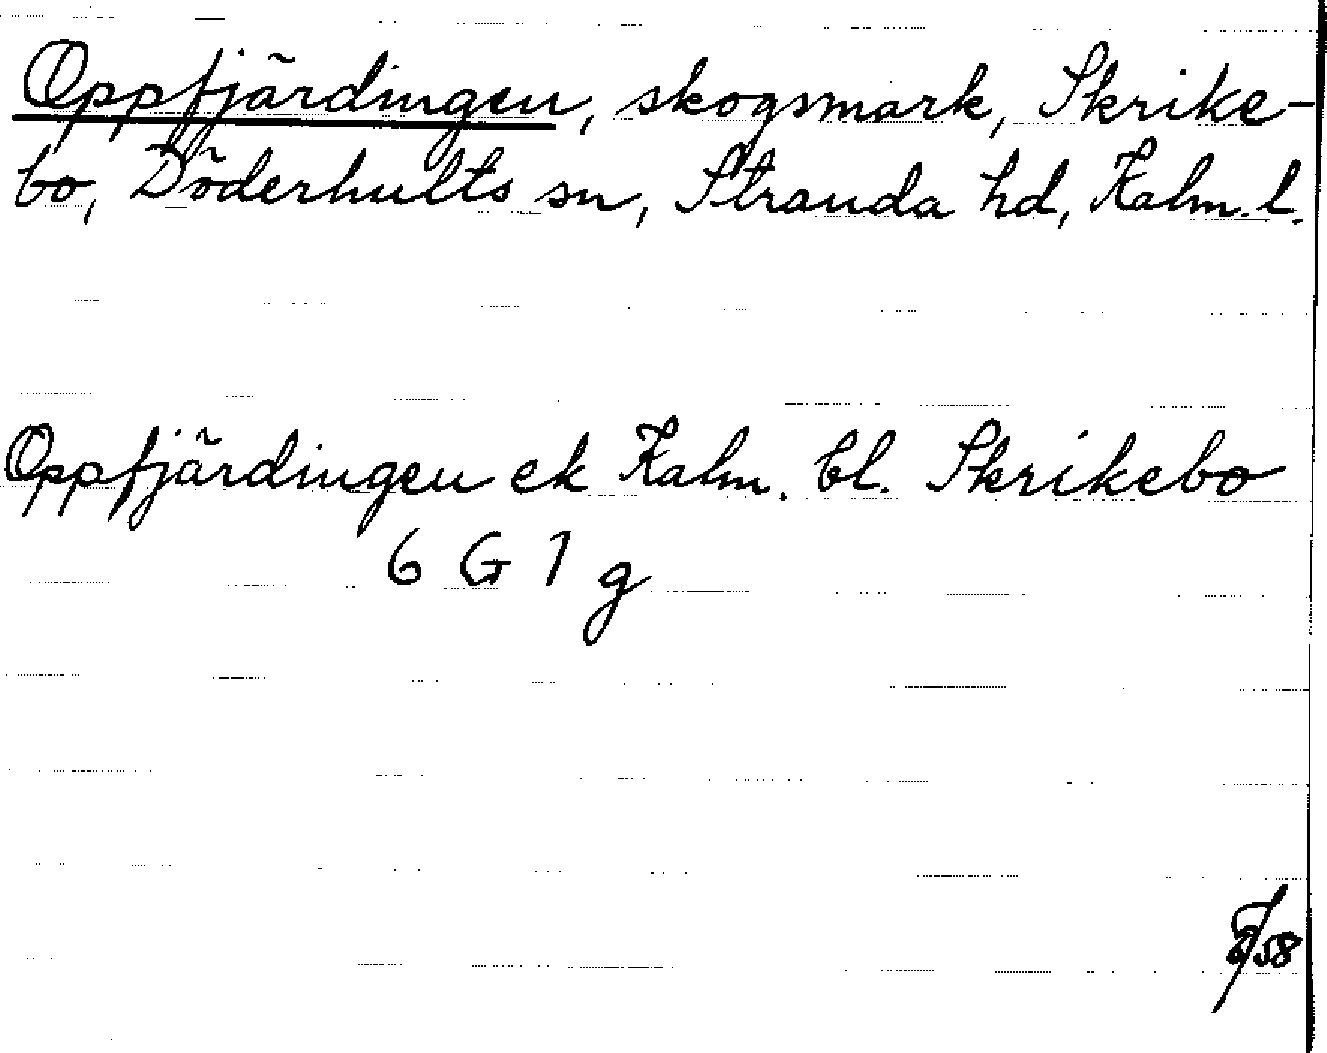 Oppfjärdingen, skogsmark, Skrike-
bo, Döderhults sn, Stranda hd, Kalm. l.
Oppfjärdingen ek Kalm. bl. Skrikebo
6 G 1 g
58